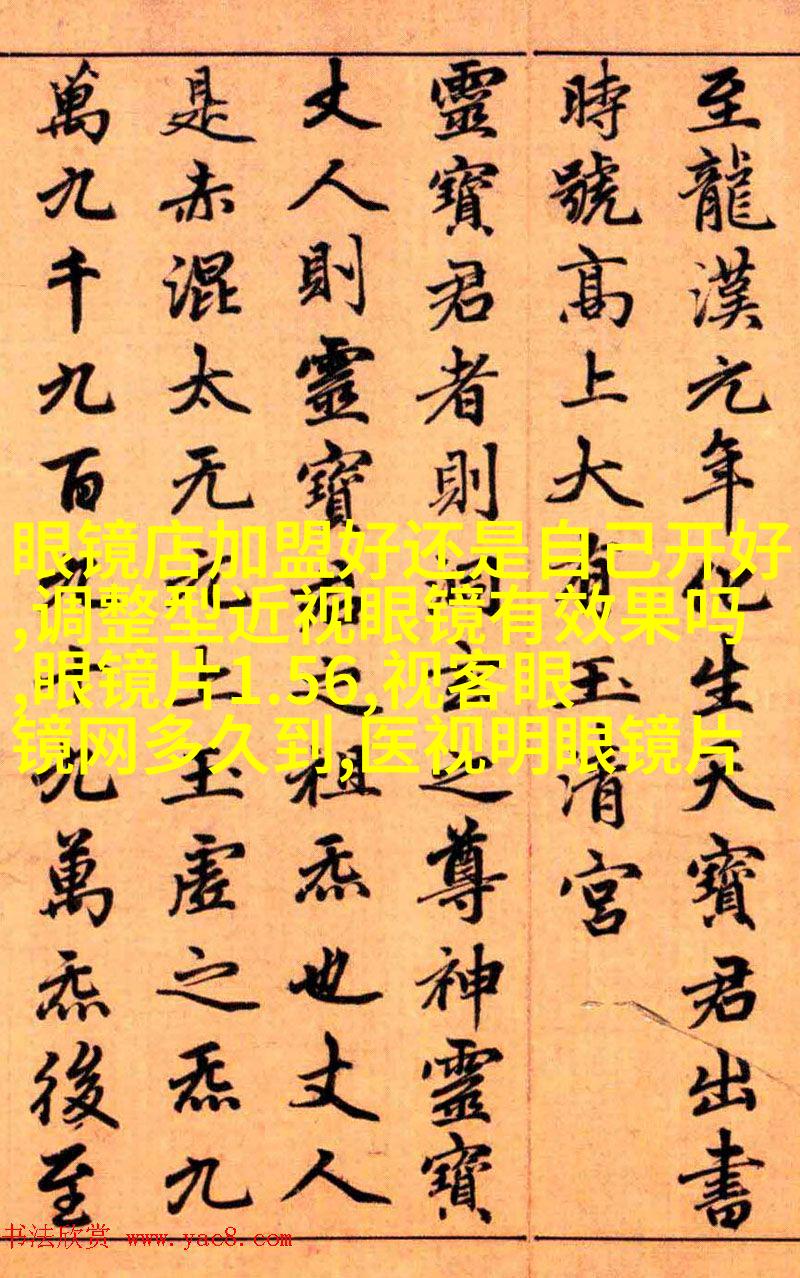 至龍漢元年化生天寶君出書
時號髙上大有玉清宮
靈寶君者則洞之尊神靈寶
丈人則靈寶君之祖炁也丈人
是赤混太无元上玉虛之炁九
萬九千九百九十九萬炁後至
眼镜店加盟好还是自己开好
,调整型近视眼镜有效果吗
,眼镜片1.56,视客眼
镜网多久到,医视明眼镜片
书法欣赏 www.yac8.com